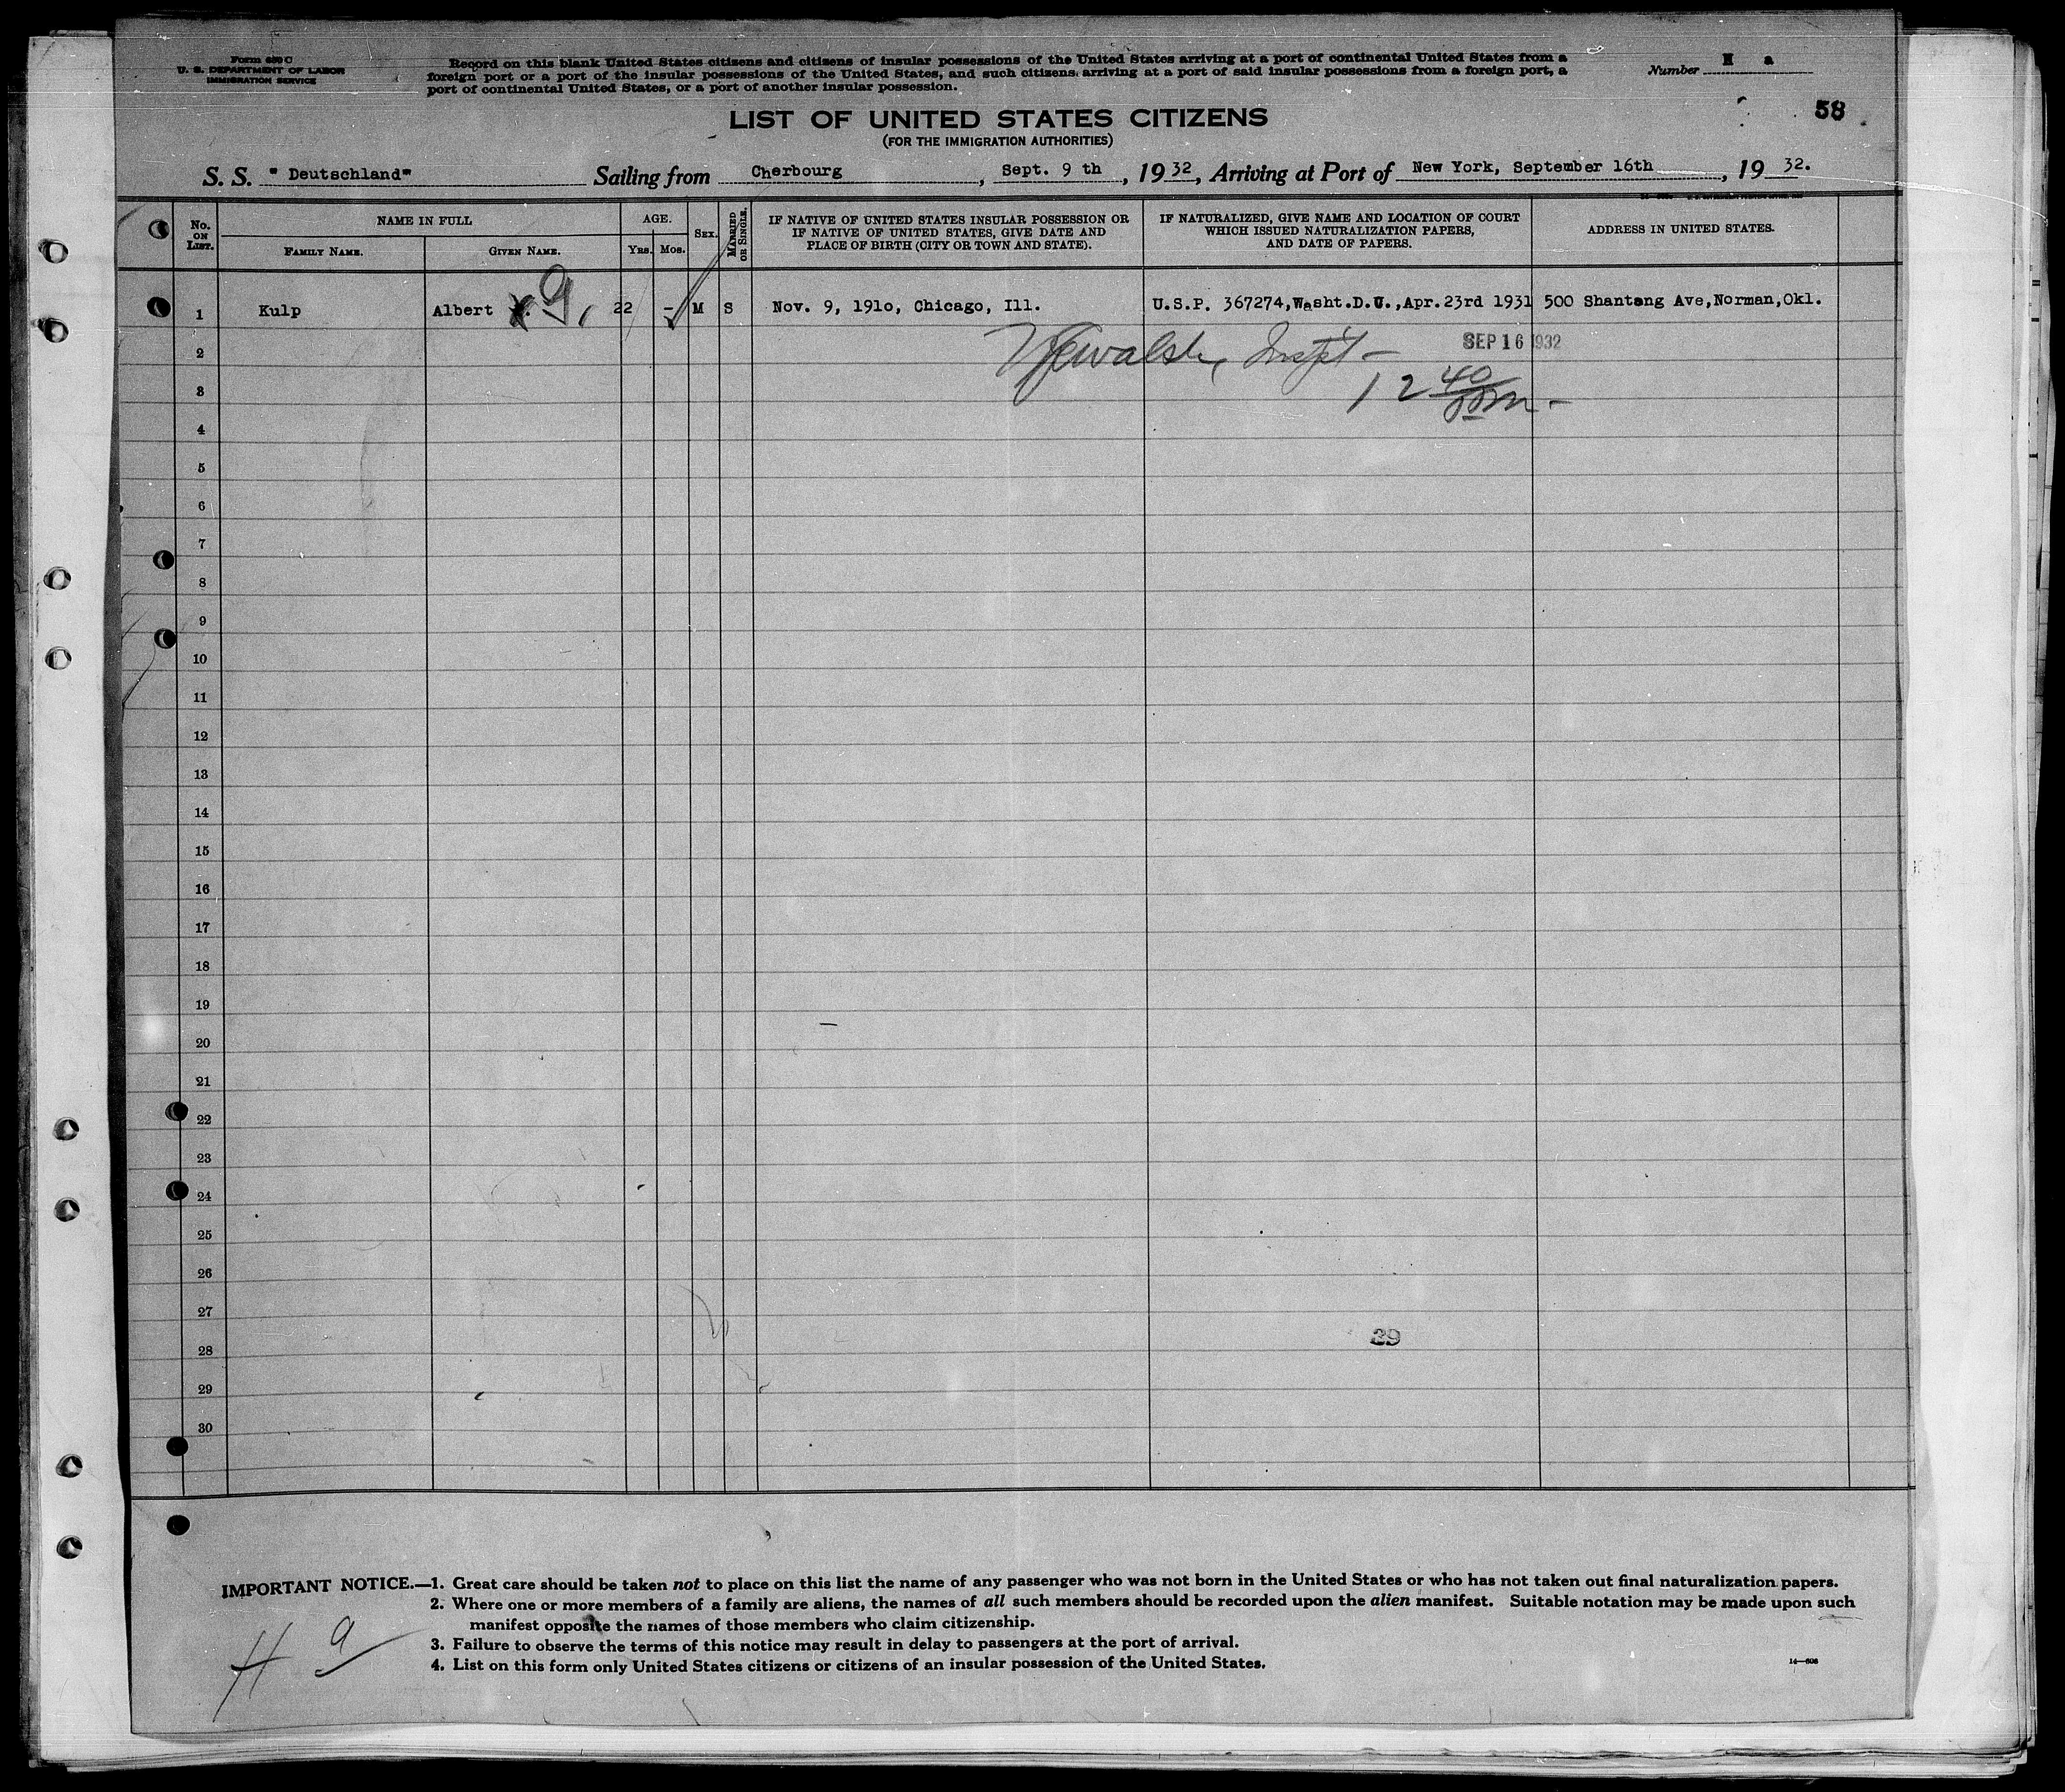 Form 630 C
U. S. DEPARTMENT OF LABOR
IMMIGRATION SERVICE
Record on this blank United States citizens and citizens of insular possessions of the United States arriving at a port of continental United States from a
foreign port or a port of the insular possessions of the United States, and such citizens arriving at a port of said insular possessions from a foreign port, a
port of continental United States, or a port of another insular possession.
Number H a
58
LIST OF UNITED STATES CITIZENS
(FOR THE IMMIGRATION AUTHORITIES)
S. S. " Deutschland" Sailing from Cherbourg, Sept. 9 th, 1932, Arriving at Port of New York, September 16th, 1932.
No. ON LIST. NAME IN FULL FAMILY NAME. GIVEN NAME. AGE. YRS. MOS. SEX. MARRIED OR SINGLE. IF NATIVE OF UNITED STATES INSULAR POSSESSION OR IF NATIVE OF UNITED STATES, GIVE DATE AND PLACE OF BIRTH (CITY OR TOWN AND STATE). IF NATURALIZED, GIVE NAME AND LOCATION OF COURT WHICH ISSUED NATURALIZATION PAPERS, AND DATE OF PAPERS. ADDRESS IN UNITED STATES.
1 Kulp Albert 22 - M S Nov. 9, 191o, Chicago, Ill. U.S.P. 367274,Washt.D.U.,Apr.23rd 1931 500 Shantang Ave,Norman,Okl.
2 Walsh, Inspt - SEP 16 1932
3 12 40 pm -
4
5
6
7
8
9
10
11
12
13
14
15
16
17
18
19
20
21
22
23
24
25
26
27
39
28
29
30
IMPORTANT NOTICE.—1. Great care should be taken not to place on this list the name of any passenger who was not born in the United States or who has not taken out final naturalization papers.
2. Where one or more members of a family are aliens, the names of all such members should be recorded upon the alien manifest. Suitable notation may be made upon such
manifest opposite the names of those members who claim citizenship.
3. Failure to observe the terms of this notice may result in delay to passengers at the port of arrival.
4. List on this form only United States citizens or citizens of an insular possession of the United States.
14—608
H a